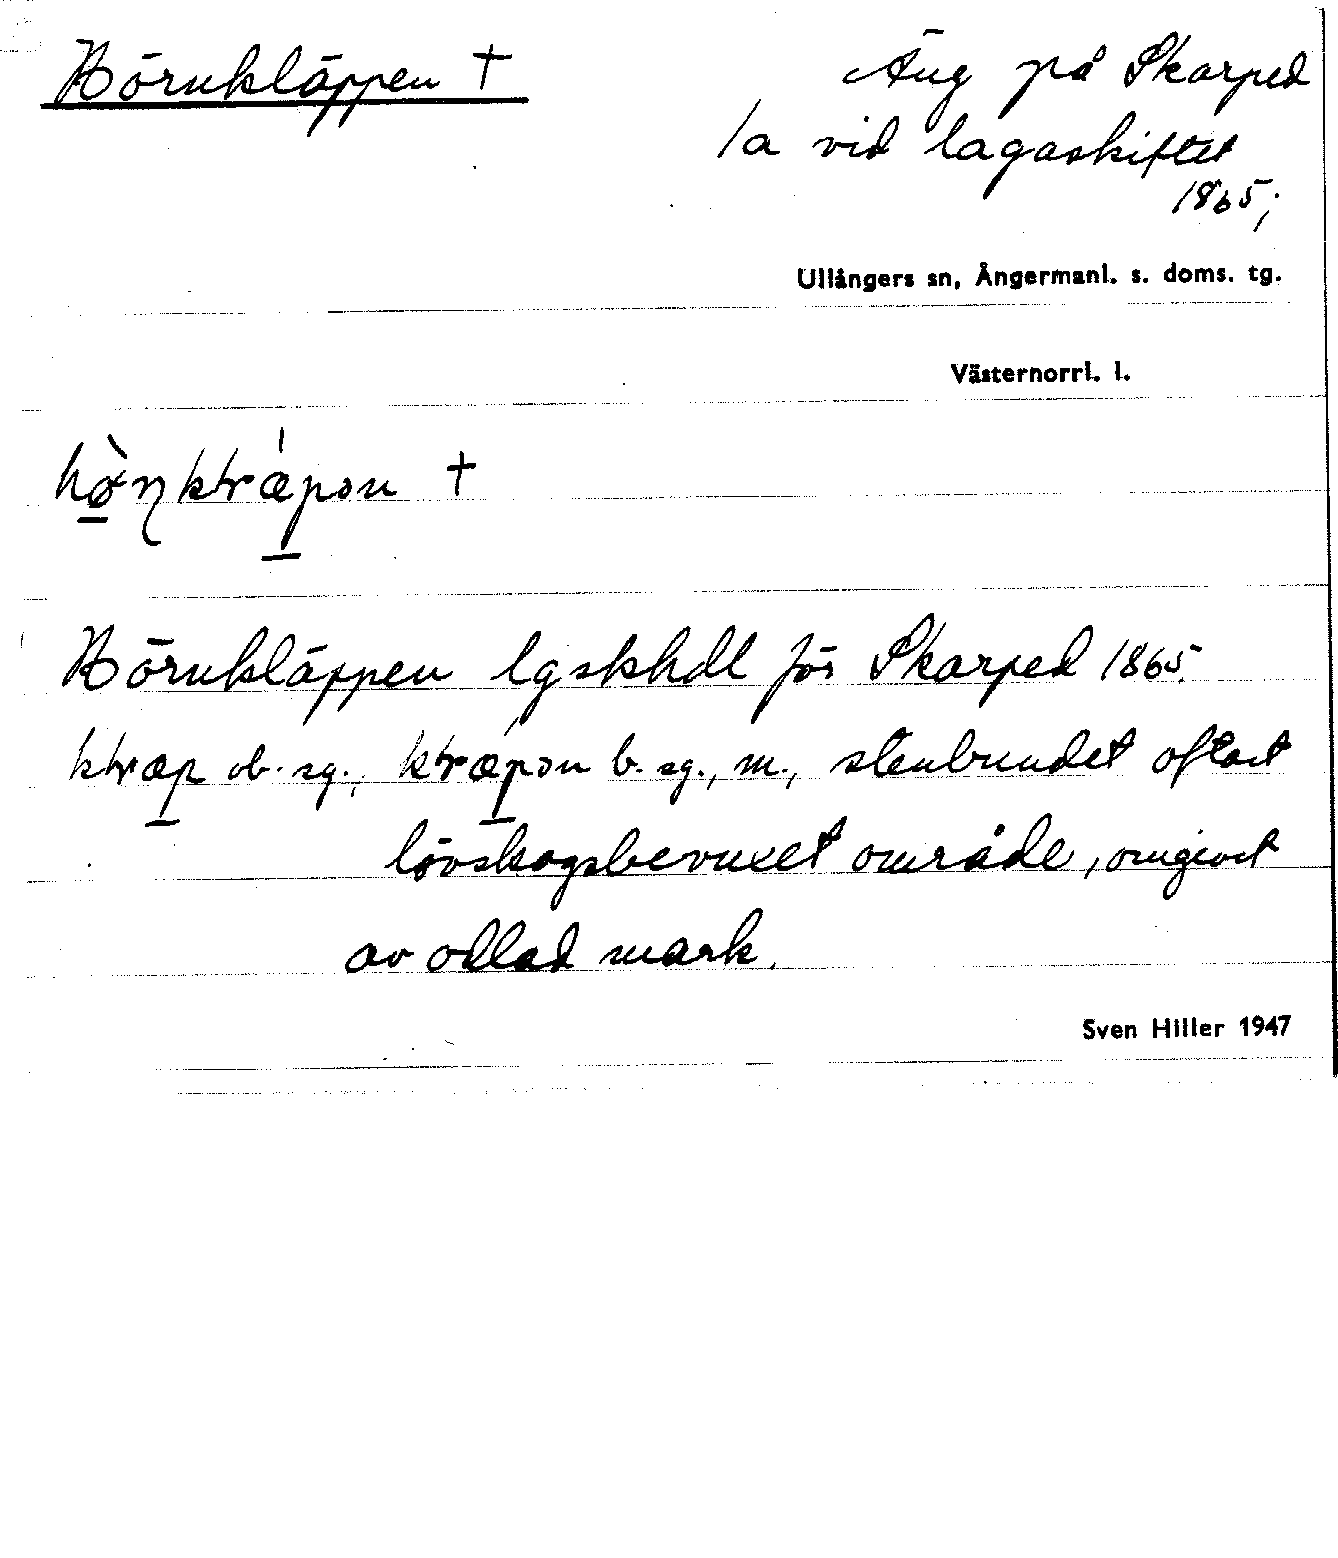 Hörnkläppen †
Äng på Skarped
1a vid lagaskiftet
1865;
Ullångers sn, Ångermanl. s. doms. tg.
Västernorrl. l.
†
Hörnkläppen lgskhdl för Skarped 1865.
ob. sg., b. sg., m., stenbundet oftast
lövskogsbevuxet område, omgivet
av odlad mark.
Sven Hiller 1947